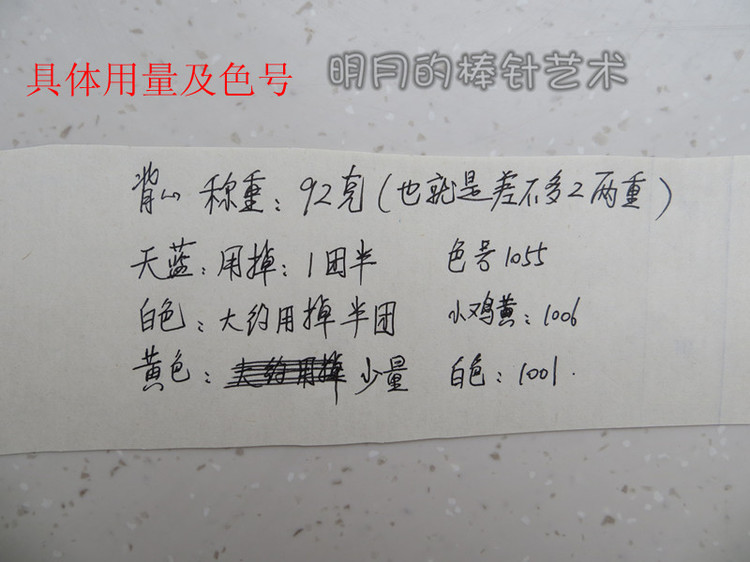 具体用量及色号 明月的棒针艺术
背心 称重：92克（也就是差不多2两重）
天蓝：用掉：1团半 色号1055
白色：大约用掉半团 小鸡黄：1006
黄色：大约用掉 少量 白色：1001.